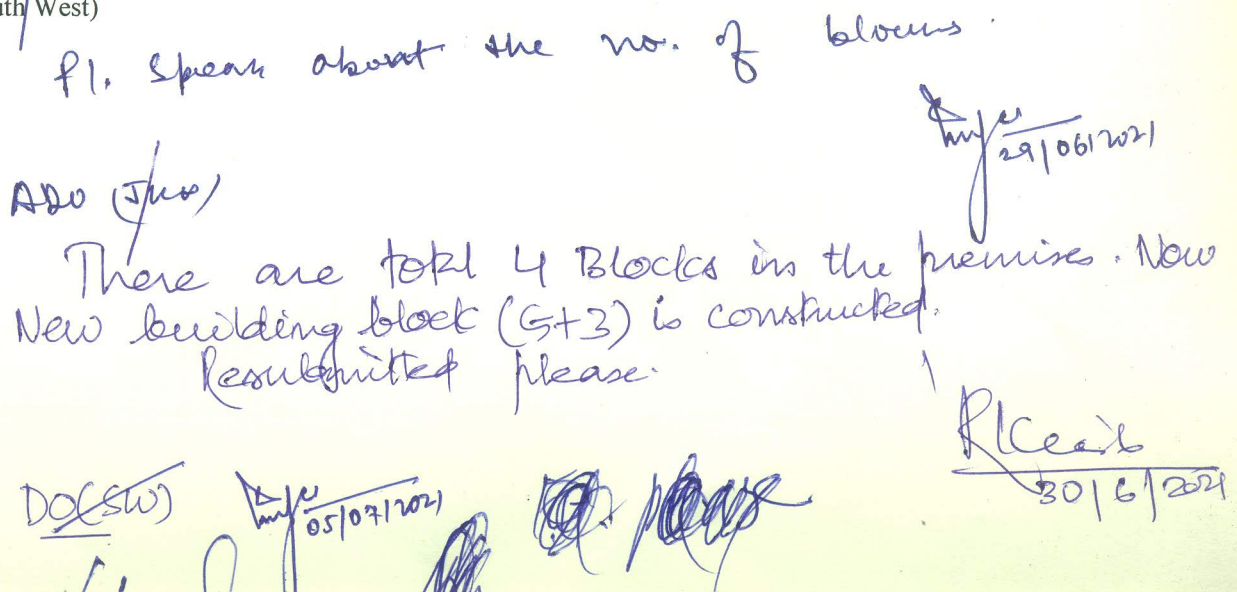 uth West)
Pl. Speak about the no. of blocks.
29/06/2021
ADO
There are total 4 Blocks in the premises. Now
New building block (G+3) is constructed.
Resubmitted please.
30/6/2021
DO(SW)
05/07/2021